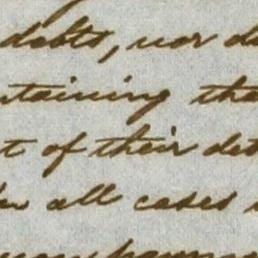 debts, nor d
taining tha
t of their det
all cases